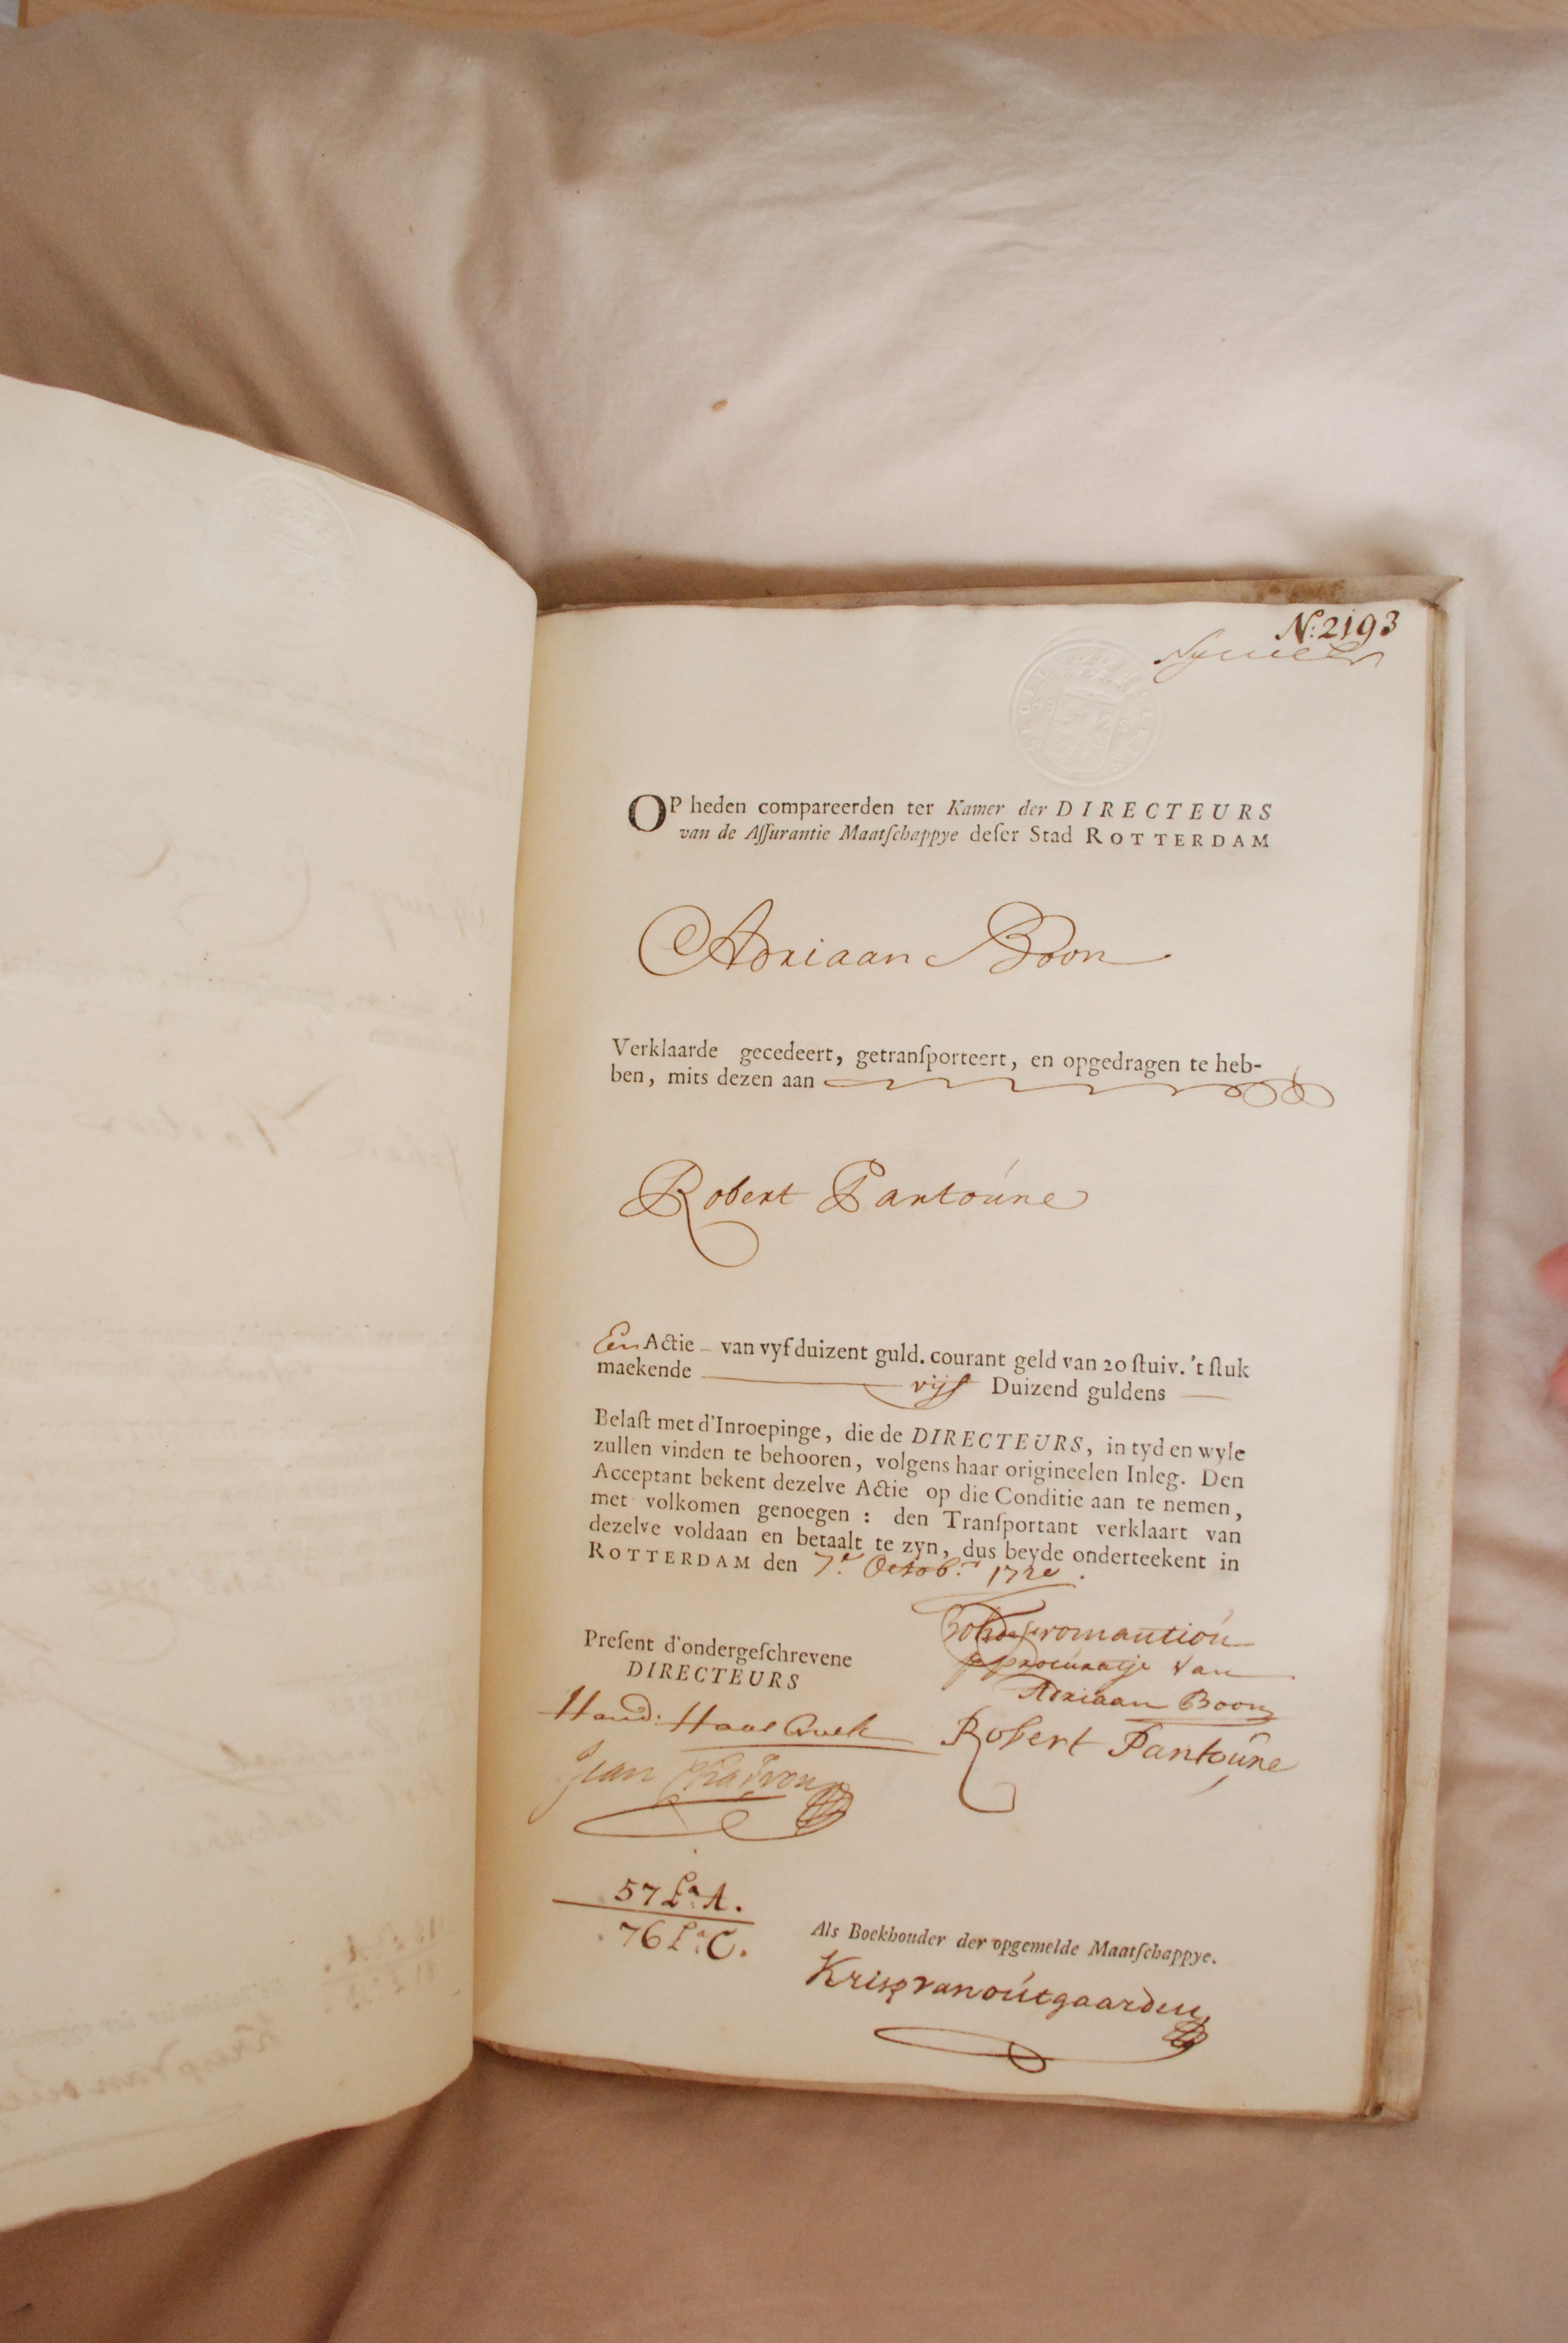 N.º 2193
OP heden compareerden ter Kamer der DIRECTEURS
van de Aſſurantie Maatſchappye deſer Stad ROTTERDAM
Adriaan Boon
Verklaarde gecedeert, getranſporteert, en opgedragen te heb-
ben, mits dezen aan
Robert Pantoúne
Een Actie van vyf duizent guld. courant geld van 20 ſtuiv. 't ſtuk
maekende vijf Duizend guldens
Belaſt met d'Inroepinge, die de DIRECTEURS, in tyd en wyle
zullen vinden te behooren, volgens haar origineelen Inleg. Den
Acceptant bekent dezelve Actie op die Conditie aan te nemen,
met volkomen genoegen : den Tranſportant verklaart van
dezelve voldaan en betaalt te zyn, dus beyde onderteekent in
ROTTERDAM den 7.e Octob.r 1720.
procúratje van
Adriaan Boon
Robert Pantoúne
Preſent d'ondergeſchrevene
DIRECTEURS
Jean
57 L.a A.
76 L.a C.
Als Boekhouder der opgemelde Maatſchappye.
Krisp van oútgaarden